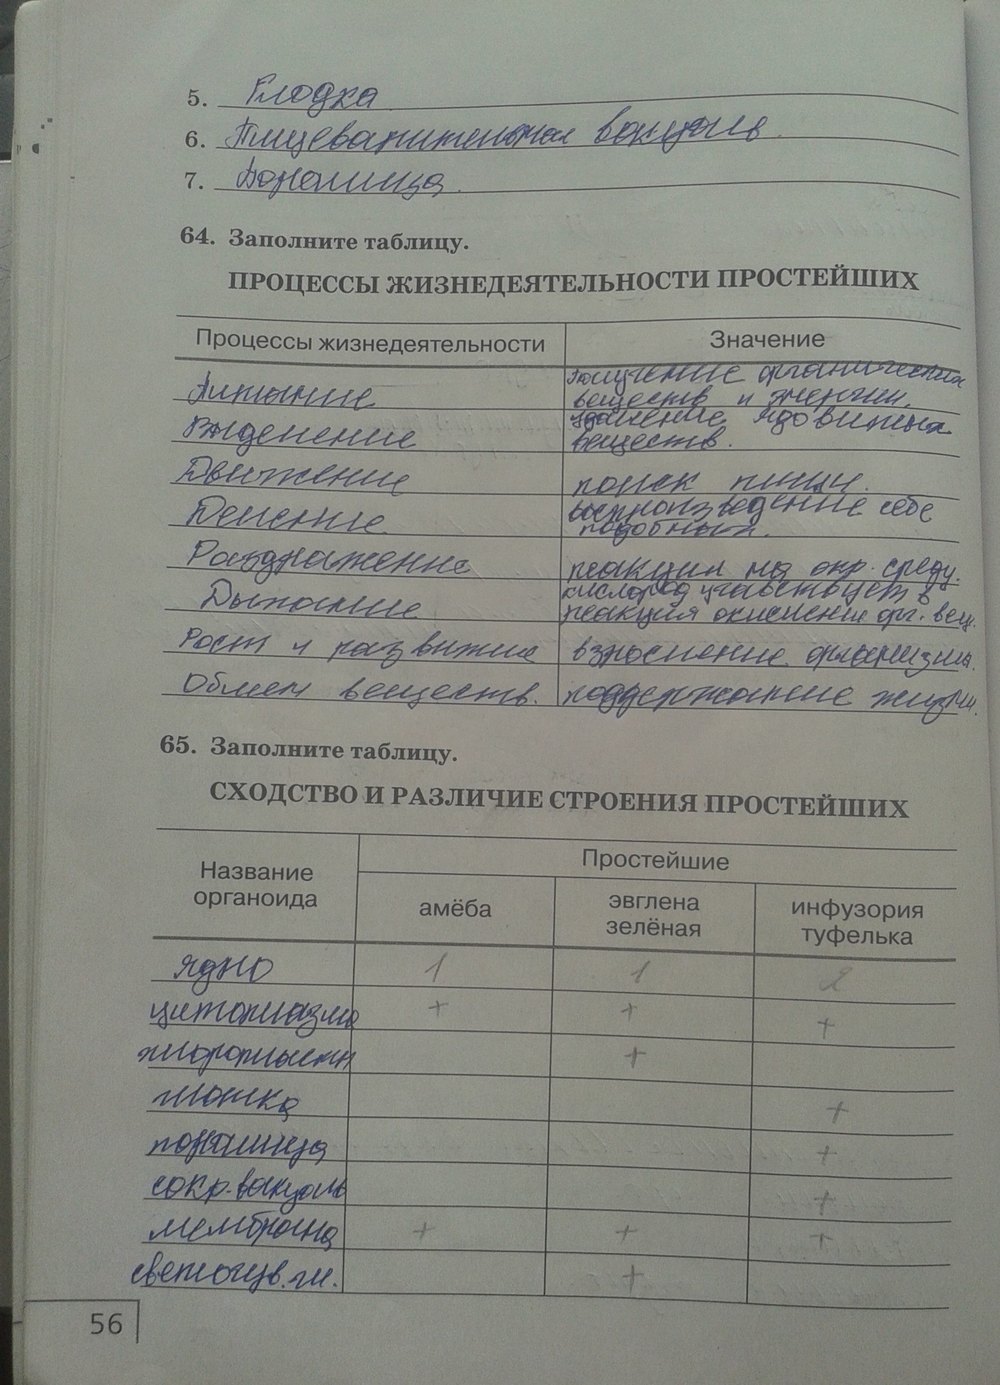 5. Глодка
6. Пищеварительная вакуоль.
7. Порошица.
64. Заполните таблицу.
ПРОЦЕССЫ ЖИЗНЕДЕЯТЕЛЬНОСТИ ПРОСТЕЙШИХ
Процессы жизнедеятельности Значение
Питание получение органических
веществ и энергии.
Выделение удаление ядовитых
веществ.
Движение поиск пищи.
Деление воспроизведение себе
подобных.
Раздражение реакция на окр. среду.
Дыхание кислород участвует в
реакция окисления орг. вещ.
Рост и развитие взросление организма.
Обмен веществ. поддержание жизни.
65. Заполните таблицу.
СХОДСТВО И РАЗЛИЧИЕ СТРОЕНИЯ ПРОСТЕЙШИХ
Название
органоида
Простейшие
амёба
эвглена
зелёная
инфузория
туфелька
ядно 1 1 2
цитоплазма + + +
хлоропласты +
глотка +
порошица +
сокр. вакуоль +
мембрана + + +
светочув. гл. +
56